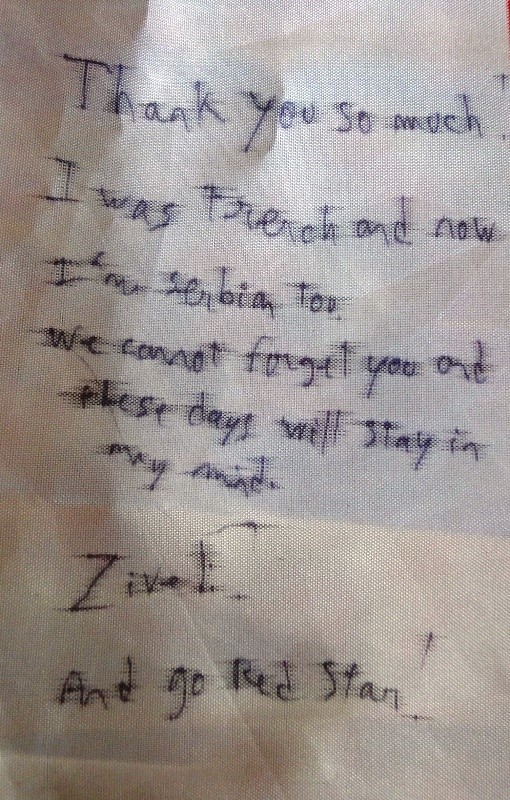 Thank you so much!
I was French and now
I'm serbian too.
We cannot forget you and
these days will stay in
my mind.
Ziveli
And go Red Star!